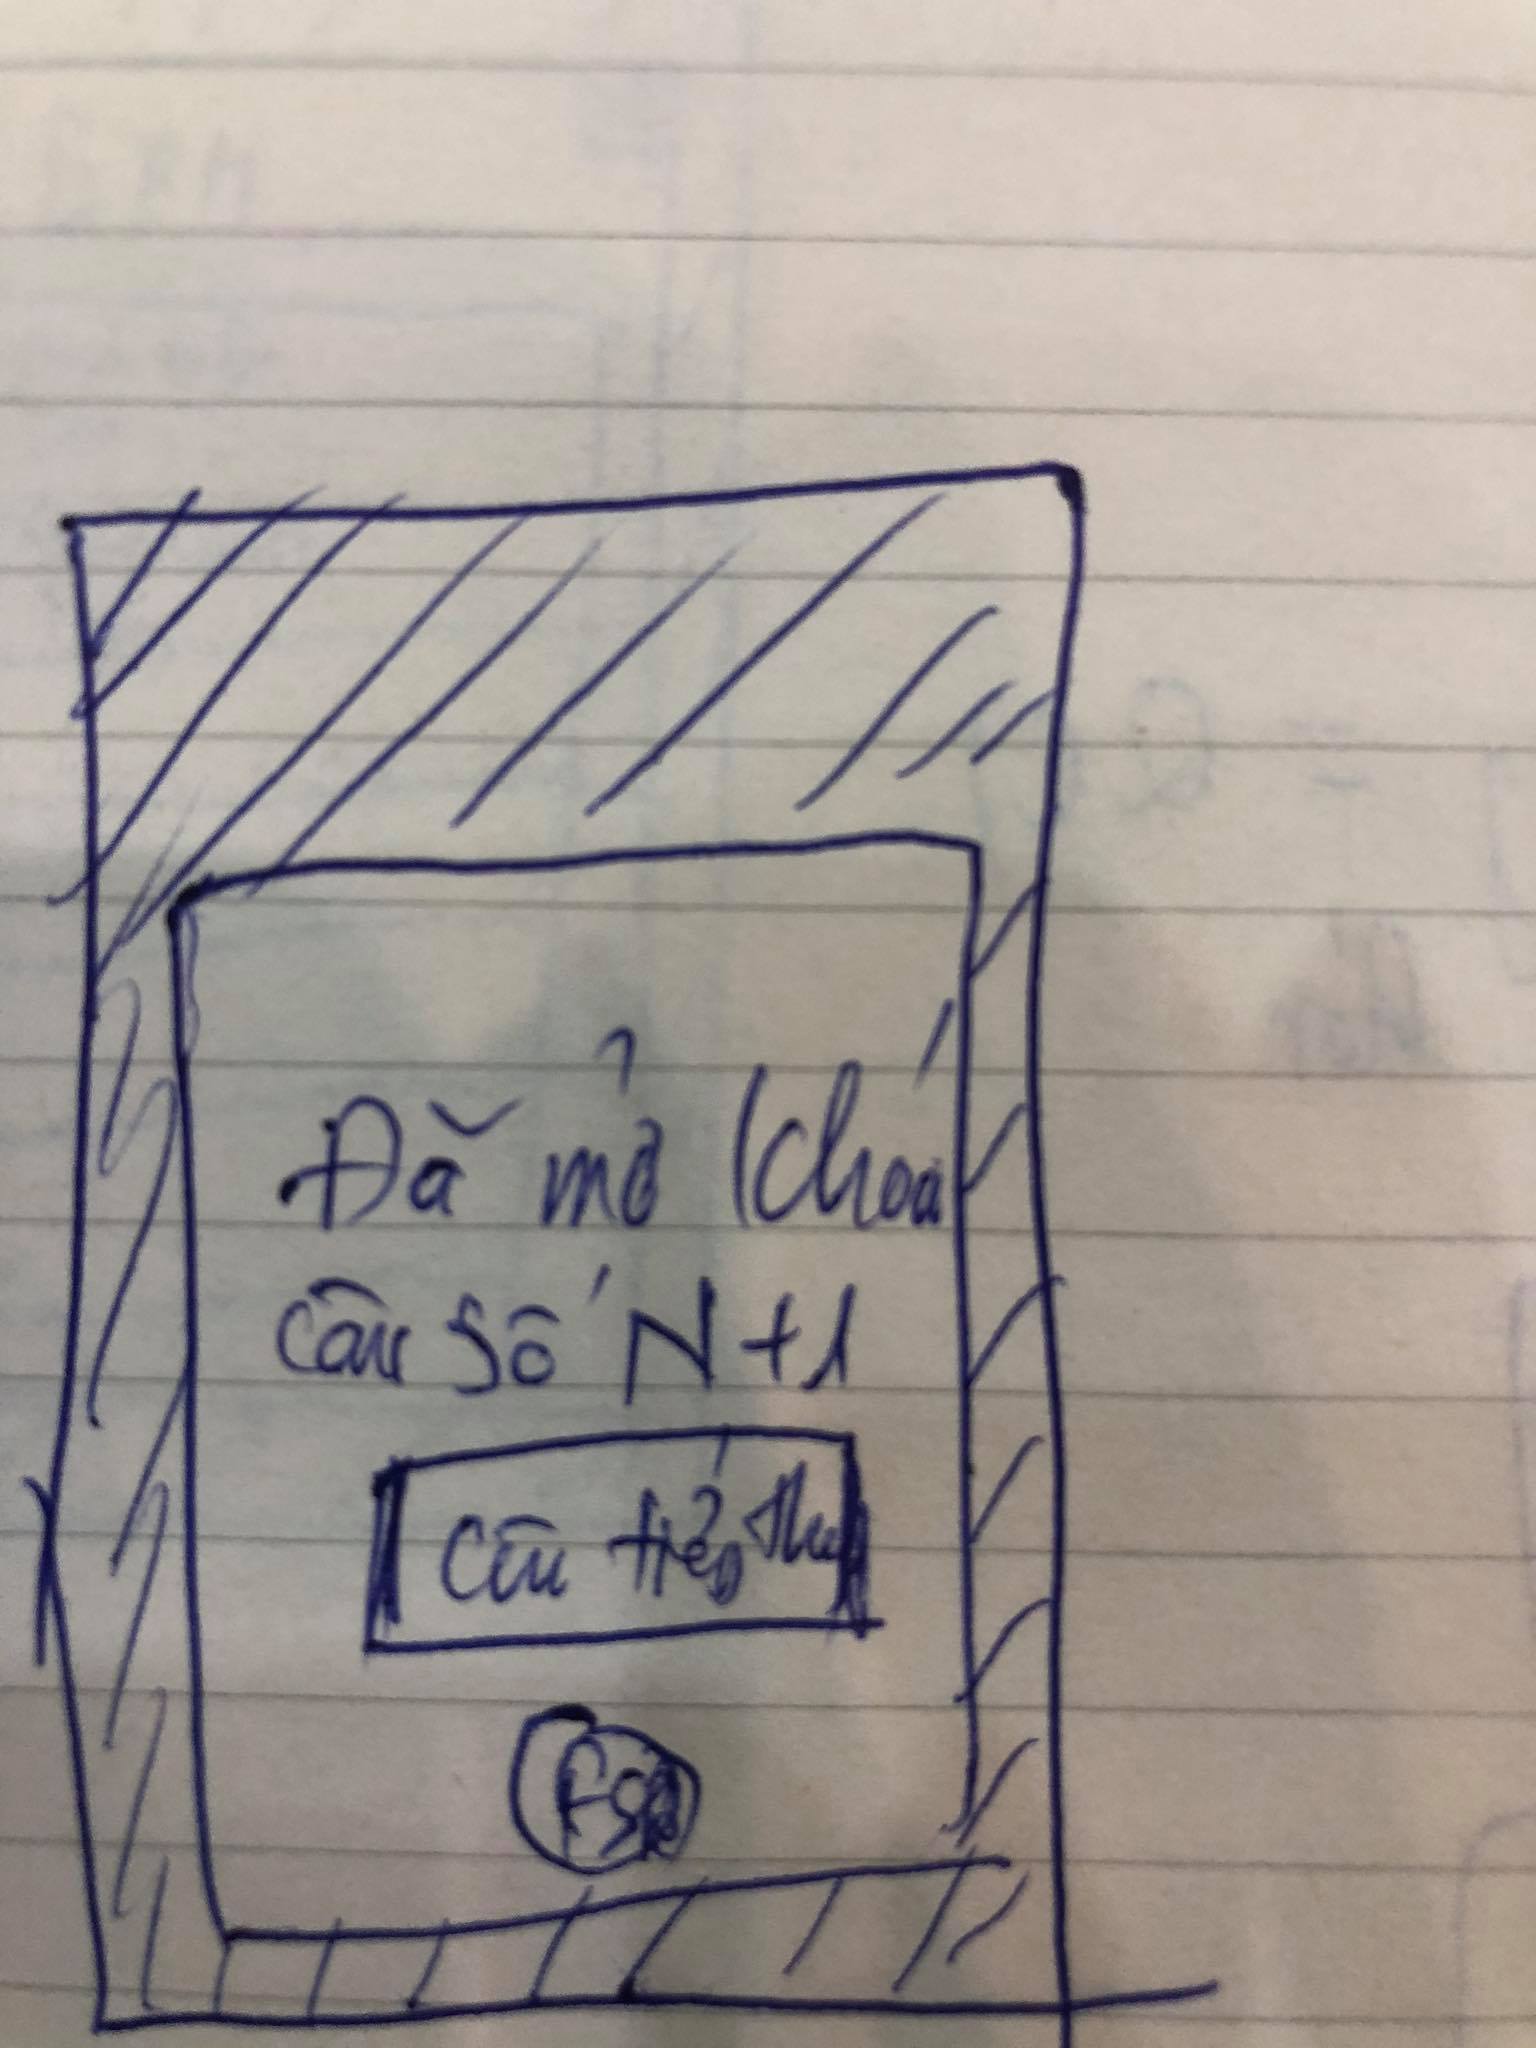 Đã mở khoá
câu số N+1
Câu tiếp theo